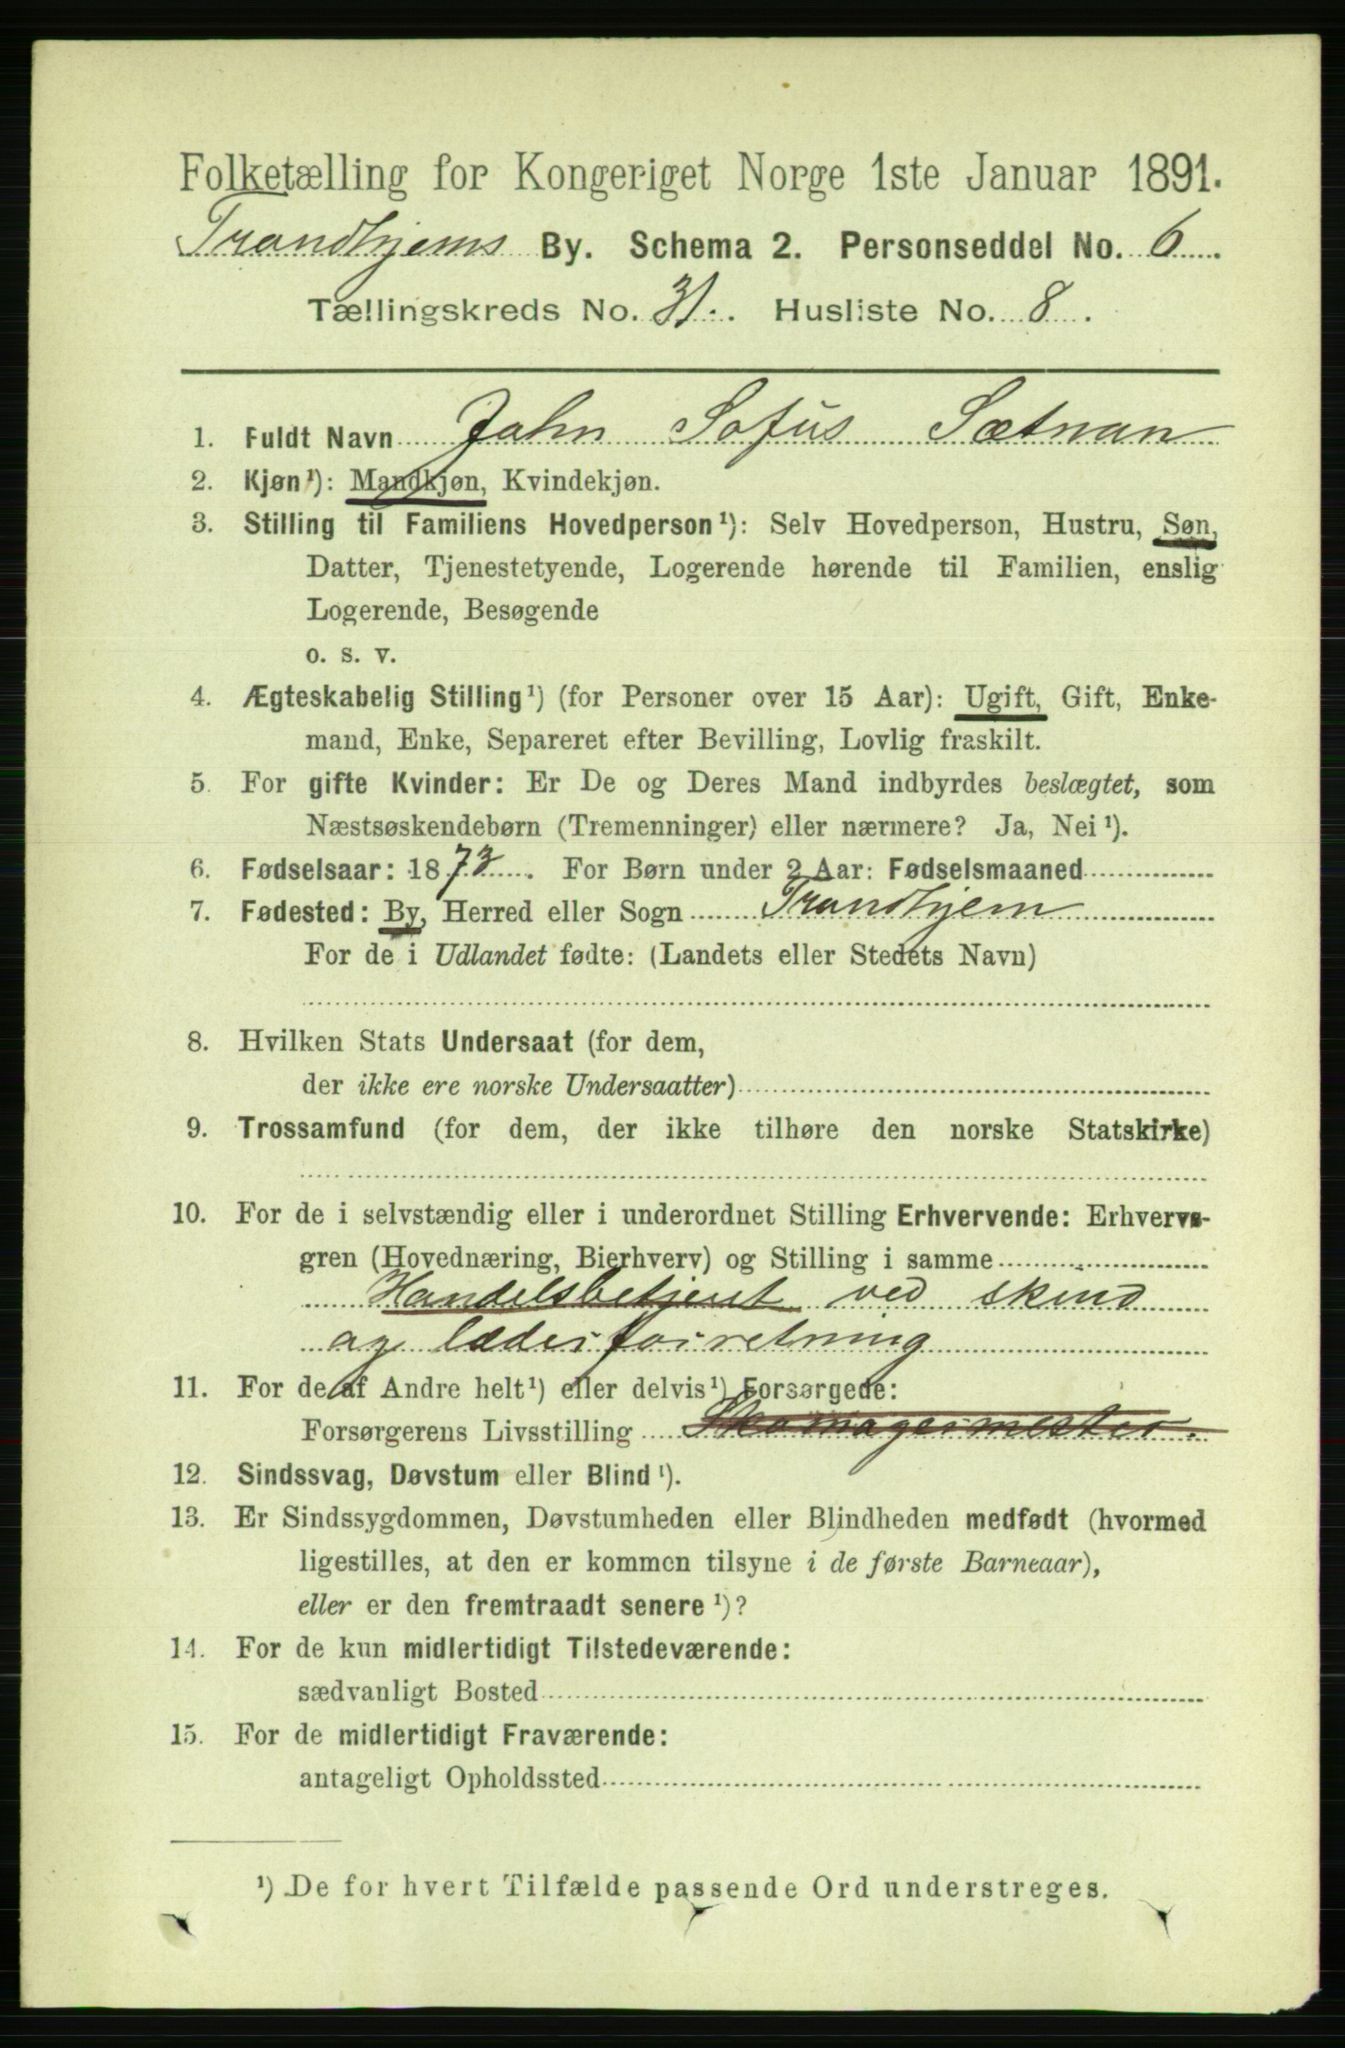 Folketælling for Kongeriget Norge 1ste Januar 1891.
Trondhjems By. Schema 2. Personseddel No. 6
Tællingskreds No. 31. Husliste No. 8.
1. Fuldt Navn John Sofus Sætnan
2. Kjøn¹): Mandkjøn, Kvindekjøn.
3. Stilling til Familiens Hovedperson¹): Selv Hovedperson, Hustru, Søn,
Datter, Tjenestetyende, Logerende hørende til Familien, enslig
Logerende, Besøgende
o. s. v.
4. Ægteskabelig Stilling¹) (for Personer over 15 Aar): Ugift, Gift, Enke-
mand, Enke, Separeret efter Bevilling, Lovlig fraskilt.
5. For gifte Kvinder: Er De og Deres Mand indbyrdes beslægtet, som
Næstsøskendebørn (Tremenninger) eller nærmere? Ja, Nei¹).
6. Fødselsaar: 1873. For Børn under 2 Aar: Fødselsmaaned
7. Fødested: By, Herred eller Sogn Trondhjem
For de i Udlandet fødte: (Landets eller Stedets Navn)
8. Hvilken Stats Undersaat (for dem,
der ikke ere norske Undersaatter)
9. Trossamfund (for dem, der ikke tilhøre den norske Statskirke)
10. For de i selvstændig eller i underordnet Stilling Erhvervende: Erhvervs-
gren (Hovednæring, Bierhverv) og Stilling i samme
Handelsbetjent ved skind
og læderforretning
11. For de af Andre helt¹) eller delvis¹) Forsørgede:
Forsørgerens Livsstilling Skomagermester.
12. Sindssvag, Døvstum eller Blind¹).
13. Er Sindssygdommen, Døvstumheden eller Blindheden medfødt (hvormed
ligestilles, at den er kommen tilsyne i de første Barneaar),
eller er den fremtraadt senere¹)?
14. For de kun midlertidigt Tilstedeværende:
sædvanligt Bosted
15. For de midlertidigt Fraværende:
antageligt Opholdssted
¹) De for hvert Tilfælde passende Ord understreges.